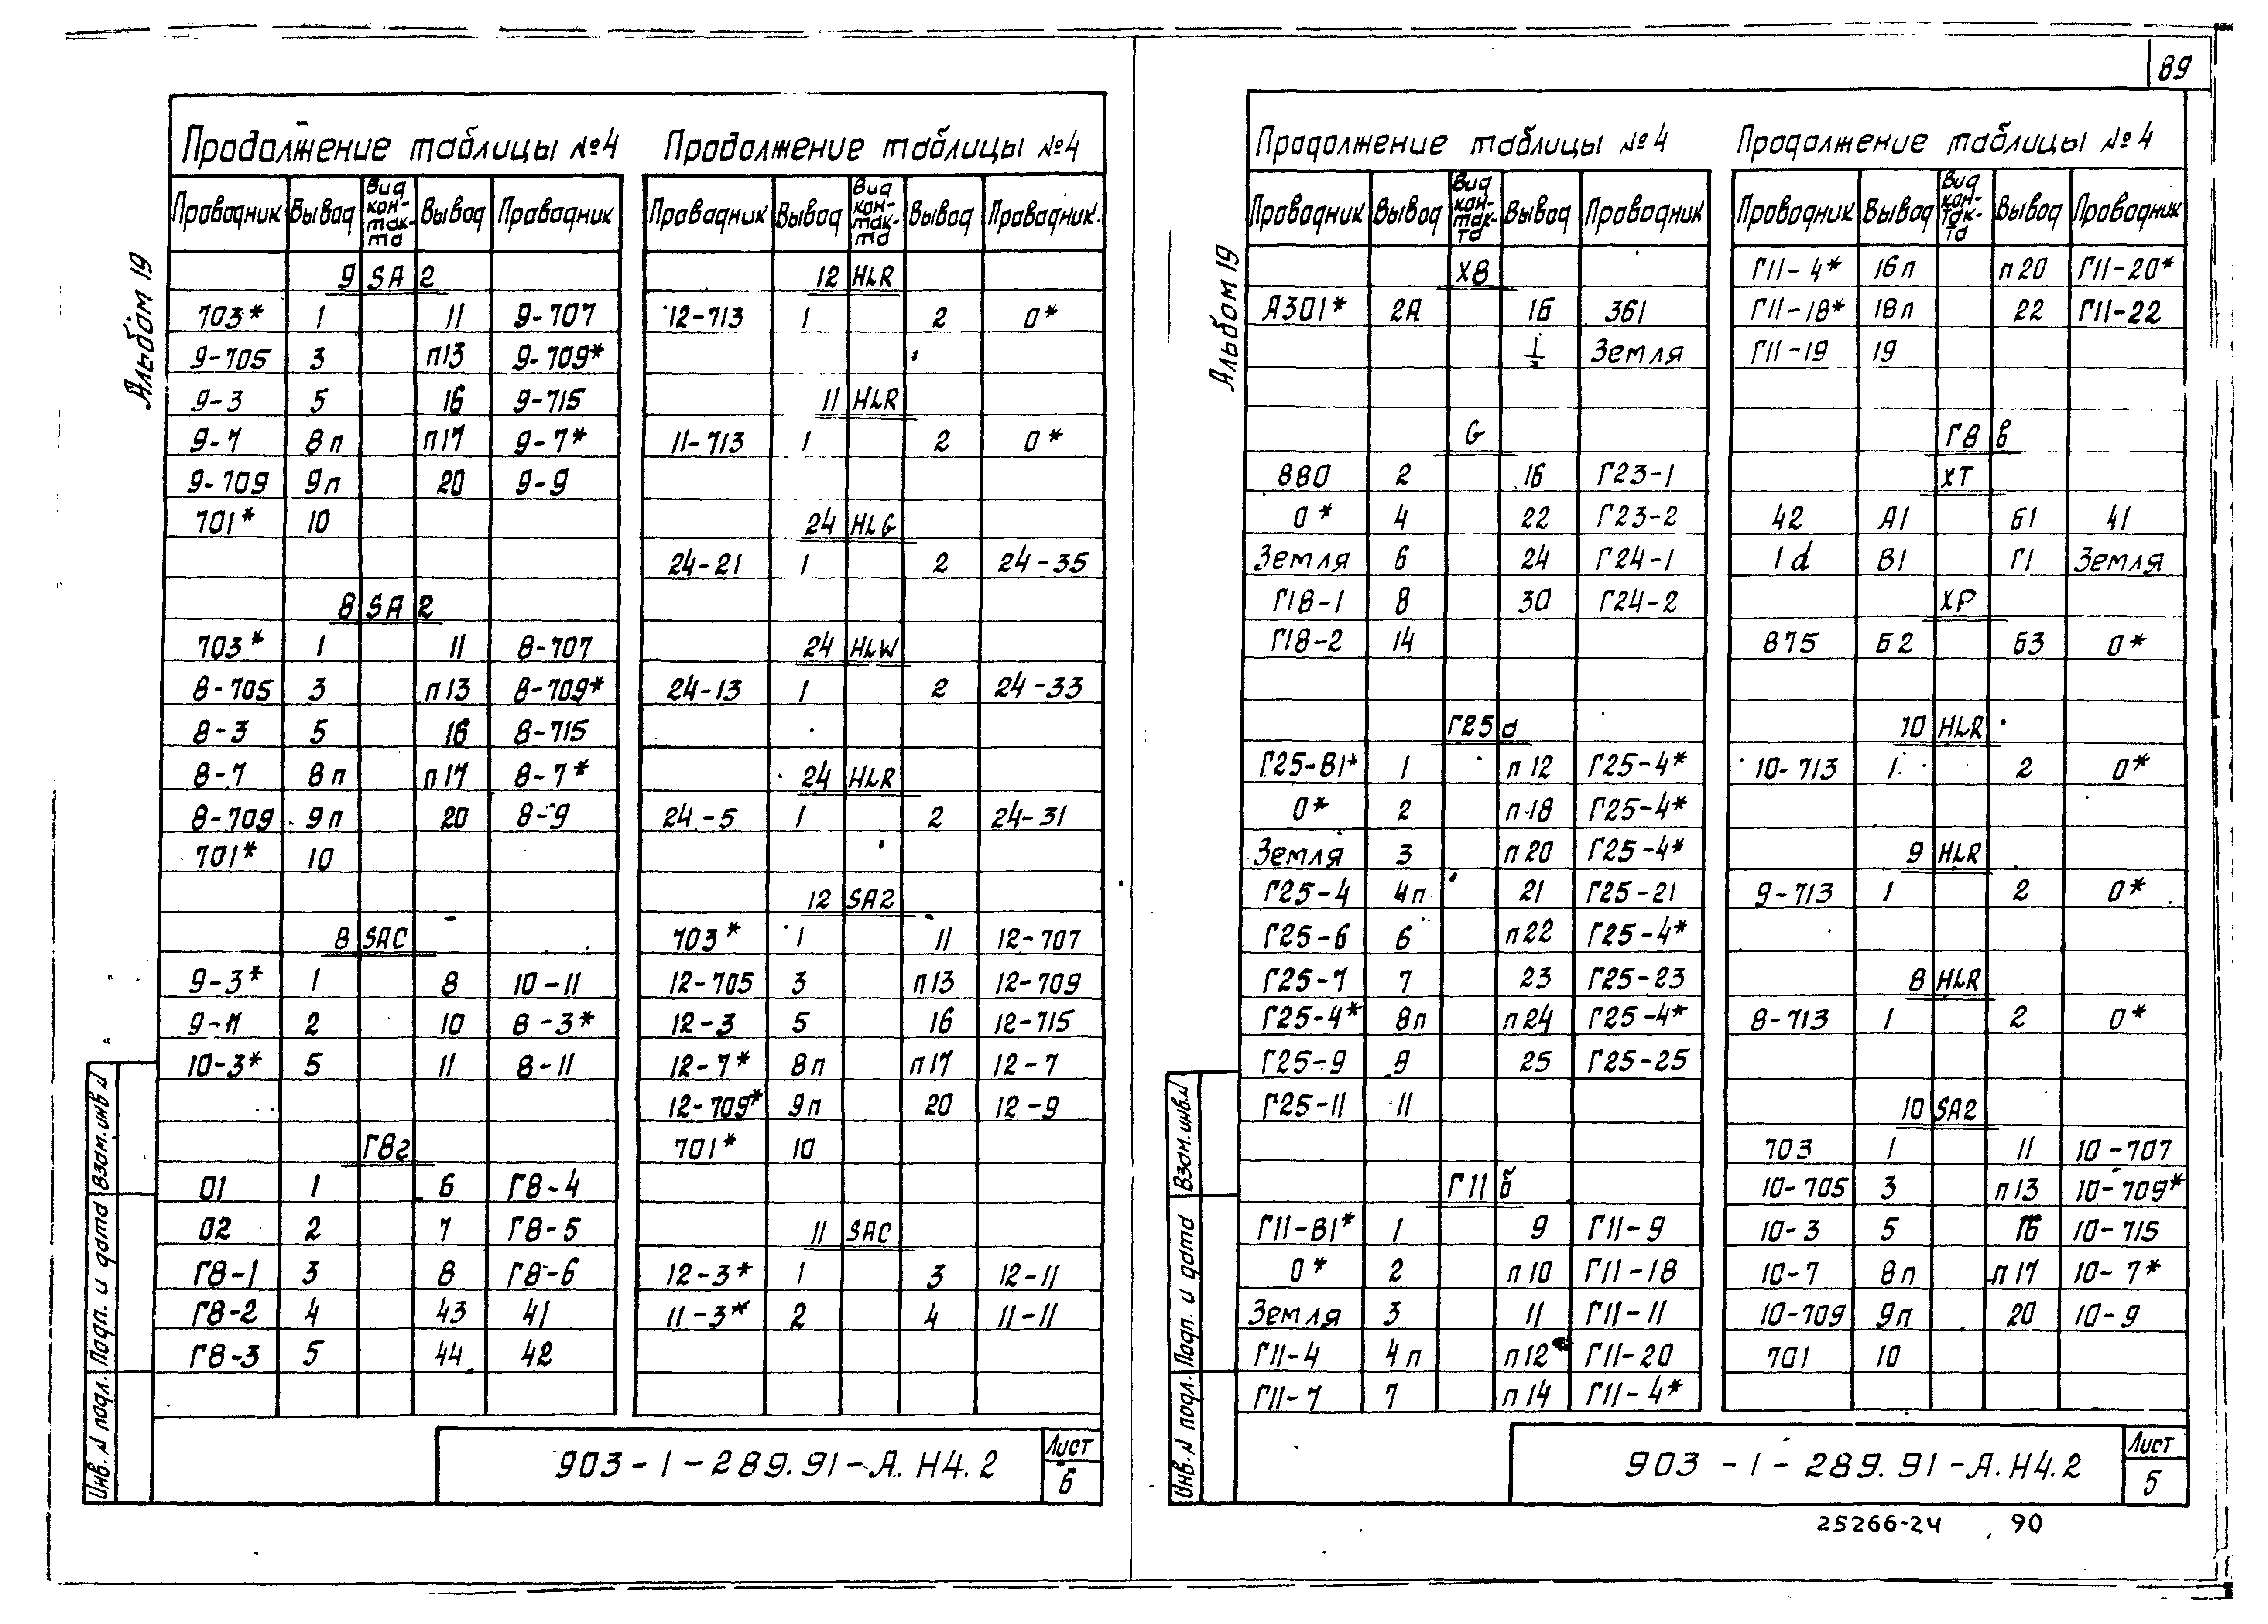 89
Альбом 19
Продолжение таблицы №4
Проводник Вывод Вид контакта Вывод Проводник
9 SA 2
703* 1 11 9-707
9-705 3 п13 9-709*
9-3 5 16 9-715
9-7 8п п17 9-7*
9-709 9п 20 9-9
701* 10
8 SA 2
703* 1 11 8-707
8-705 3 п13 8-709*
8-3 5 16 8-715
8-7 8п п17 8-7*
8-709 9п 20 8-9
701* 10
8 SAC
9-3* 1 8 10-11
9-11 2 10 8-3*
10-3* 5 11 8-11
Г8г
01 1 6 Г8-4
02 2 7 Г8-5
Г8-1 3 8 Г8-6
Г8-2 4 43 41
Г8-3 5 44 42
Продолжение таблицы №4
Проводник Вывод Вид контакта Вывод Проводник.
12 HLR
12-713 1 2 0*
11 HLR
11-713 1 2 0*
24 HLG
24-21 1 2 24-35
24 HLW
24-13 1 2 24-33
24 HLR
24-5 1 2 24-31
12 SA2
703* 1 11 12-707
12-705 3 п13 12-709
12-3 5 16 12-715
12-7* 8п п17 12-7
12-709* 9п 20 12-9
701* 10
11 SAC
12-3* 1 3 12-11
11-3* 2 4 11-11
Инв. № подл. Подп. и дата Взам. инв №
903-1-289.91-А.Н4.2
Лист
6
Альбом 19
Продолжение таблицы №4
Проводник Вывод Вид контакта Вывод Проводник
X8
А301* 2А 16 361
⏚ Земля
G
880 2 16 Г23-1
0* 4 22 Г23-2
Земля 6 24 Г24-1
Г18-1 8 30 Г24-2
Г18-2 14
Г25 а
Г25-В1* 1 п12 Г25-4*
0* 2 п18 Г25-4*
Земля 3 п20 Г25-4*
Г25-4 4п 21 Г25-21
Г25-6 6 п22 Г25-4*
Г25-7 7 23 Г25-23
Г25-4* 8п п24 Г25-4*
Г25-9 9 25 Г25-25
Г25-11 11
Г11 б
Г11-В1* 1 9 Г11-9
0* 2 п10 Г11-18
Земля 3 11 Г11-11
Г11-4 4п п12 Г11-20
Г11-7 7 п14 Г11-4*
Продолжение таблицы №4
Проводник Вывод Вид контакта Вывод Проводник
Г11-4* 16п п20 Г11-20*
Г11-18* 18п 22 Г11-22
Г11-19 19
Г8 в
XT
42 А1 Б1 41
1d В1 Г1 Земля
XP
875 Б2 Б3 0*
10 HLR
10-713 1 2 0*
9 HLR
9-713 1 2 0*
8 HLR
8-713 1 2 0*
10 SA2
703 1 11 10-707
10-705 3 п13 10-709*
10-3 5 16 10-715
10-7 8п п17 10-7*
10-709 9п 20 10-9
701 10
Инв. № подл. Подп. и дата Взам. инв.№
903-1-289.91-А.Н4.2
Лист
5
25266-24 90